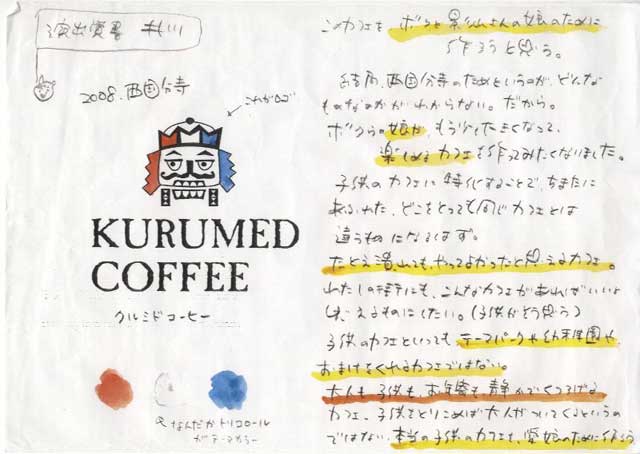 演出覚書
2008.西国分寺
これがロゴ
KURUMED
COFFEE
クルミドコーヒー
なんだかトリコロール
がテーマカラー
このカフェを ボクと影山さんの娘のために
作ろうと思う。
結局、西国分寺のためというのが、どんな
ものなのかがわからない。だから。
ボクらの娘が、もう少し大きくなって、
楽しめるカフェを作ってみたくなりました。
子供のカフェに特化することで、ちまたに
あふれた、どこをとっても同じカフェとは
違うものになるはず。
たとえ潰れても、やってよかったと思えるカフェ。
わたしの にも、こんなカフェがあればいいと
思えるものにしたい。(子供がそう思う)
子供のカフェといっても、テーマパークや幼稚園や
おまけをくれるカフェではない。
大人も子供も、お年寄も、静かでくつろげる
カフェ、子供をとりこめば大人がついてくるというの
ではない、本当の子供のカフェを、 娘のために作ろう